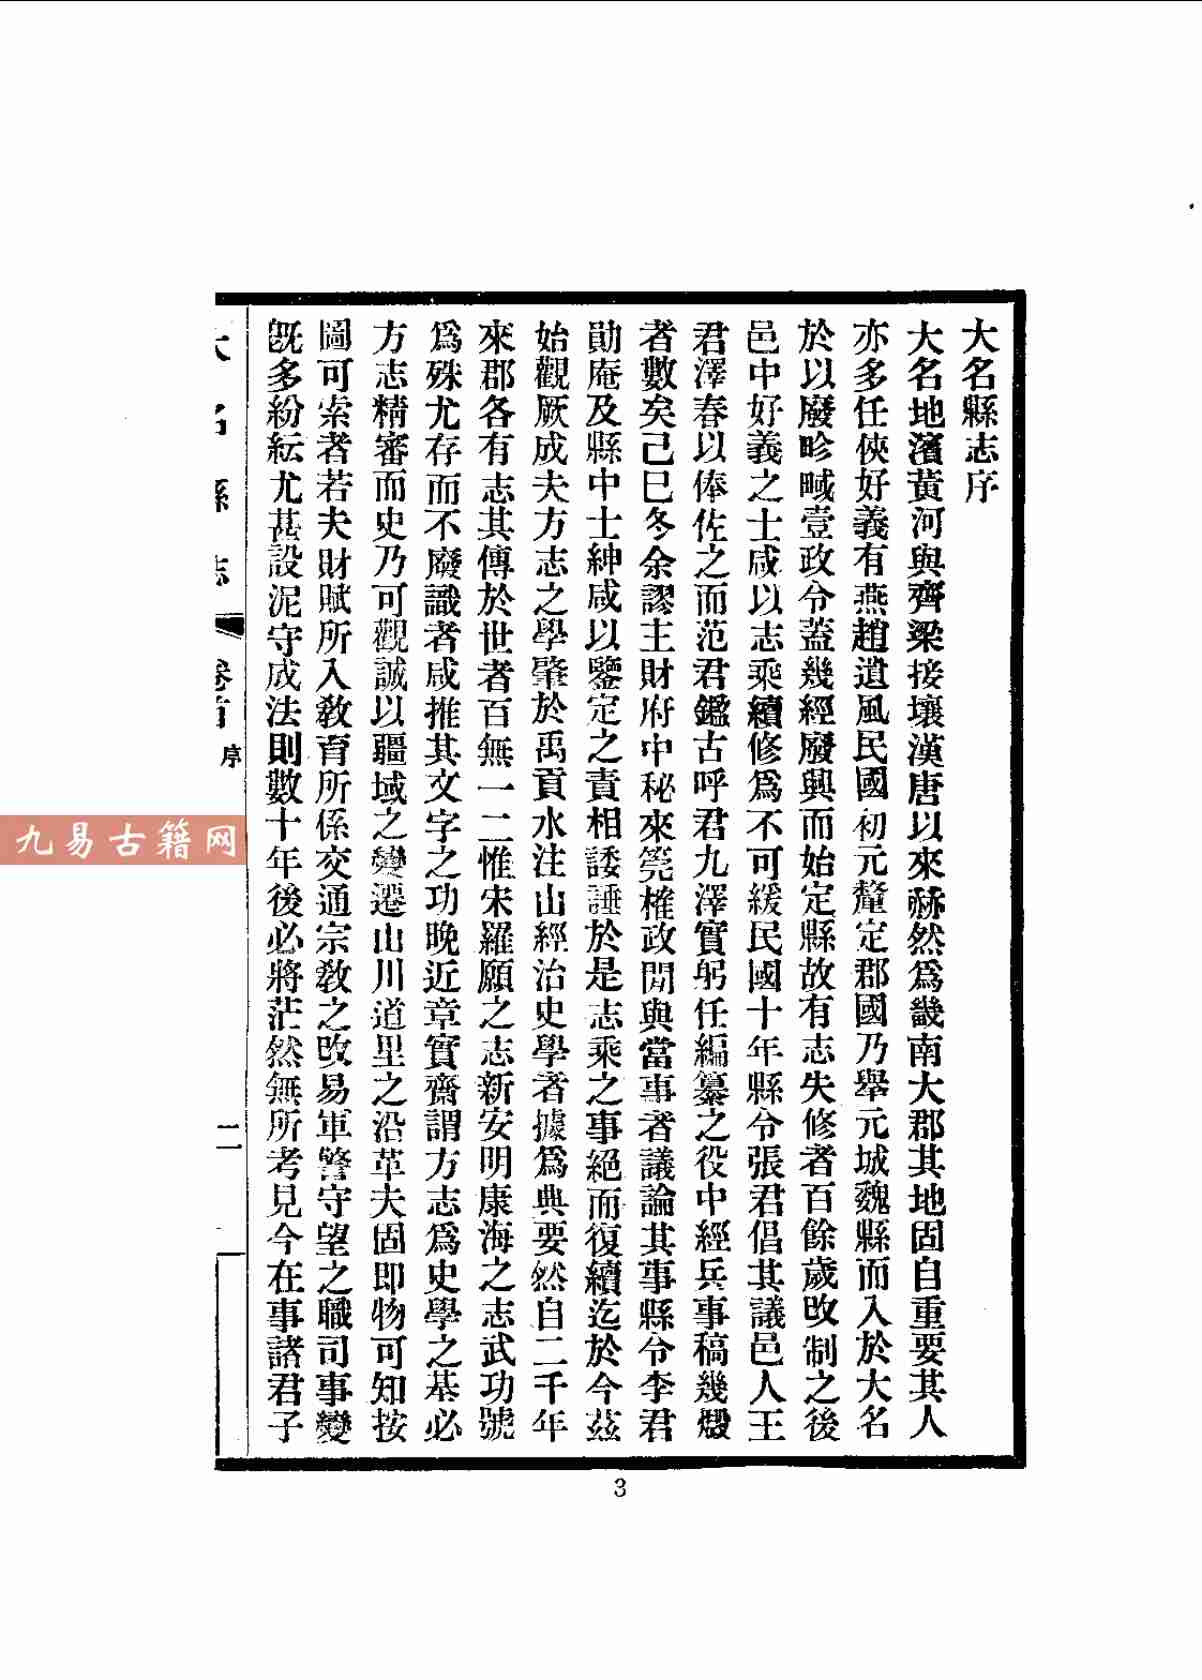 大名縣志序
大名地濱黃河與齊梁接壤漢唐以來赫然爲畿南大郡其地固自重要其人
亦多任俠好義有燕趙遺風民國初元釐定郡國乃舉元城魏縣而入於大名
於以廢畛域壹政令蓋幾經廢興而始定縣故有志失修者百餘歲改制之後
邑中好義之士咸以志乘續修爲不可緩民國十年縣令張君倡其議邑人王
君澤春以俸佐之而范君鑑古呼君九澤實躬任編纂之役中經兵事稿幾燬
者數矣己巳冬余謬主財府中秘來筦榷政閒與當事者議論其事縣令李君
勛庵及縣中士紳咸以鑒定之責相諉諈於是志乘之事絕而復續迄於今茲
始觀厥成夫方志之學肇於禹貢水注山經治史學者據爲典要然自二千年
來郡各有志其傳於世者百無一二惟宋羅願之志新安明康海之志武功號
爲殊尤存而不廢識者咸推其文字之功晚近章實齋謂方志爲史學之基必
方志精審而史乃可觀誠以疆域之變遷山川道里之沿革夫固即物可知按
圖可索者若夫財賦所入敎育所係交通宗敎之改易軍警守望之職司事變
旣多紛紜尤甚設泥守成法則數十年後必將茫然無所考見今在事諸君子
大名縣志 卷首 序 二
3
九易古籍网